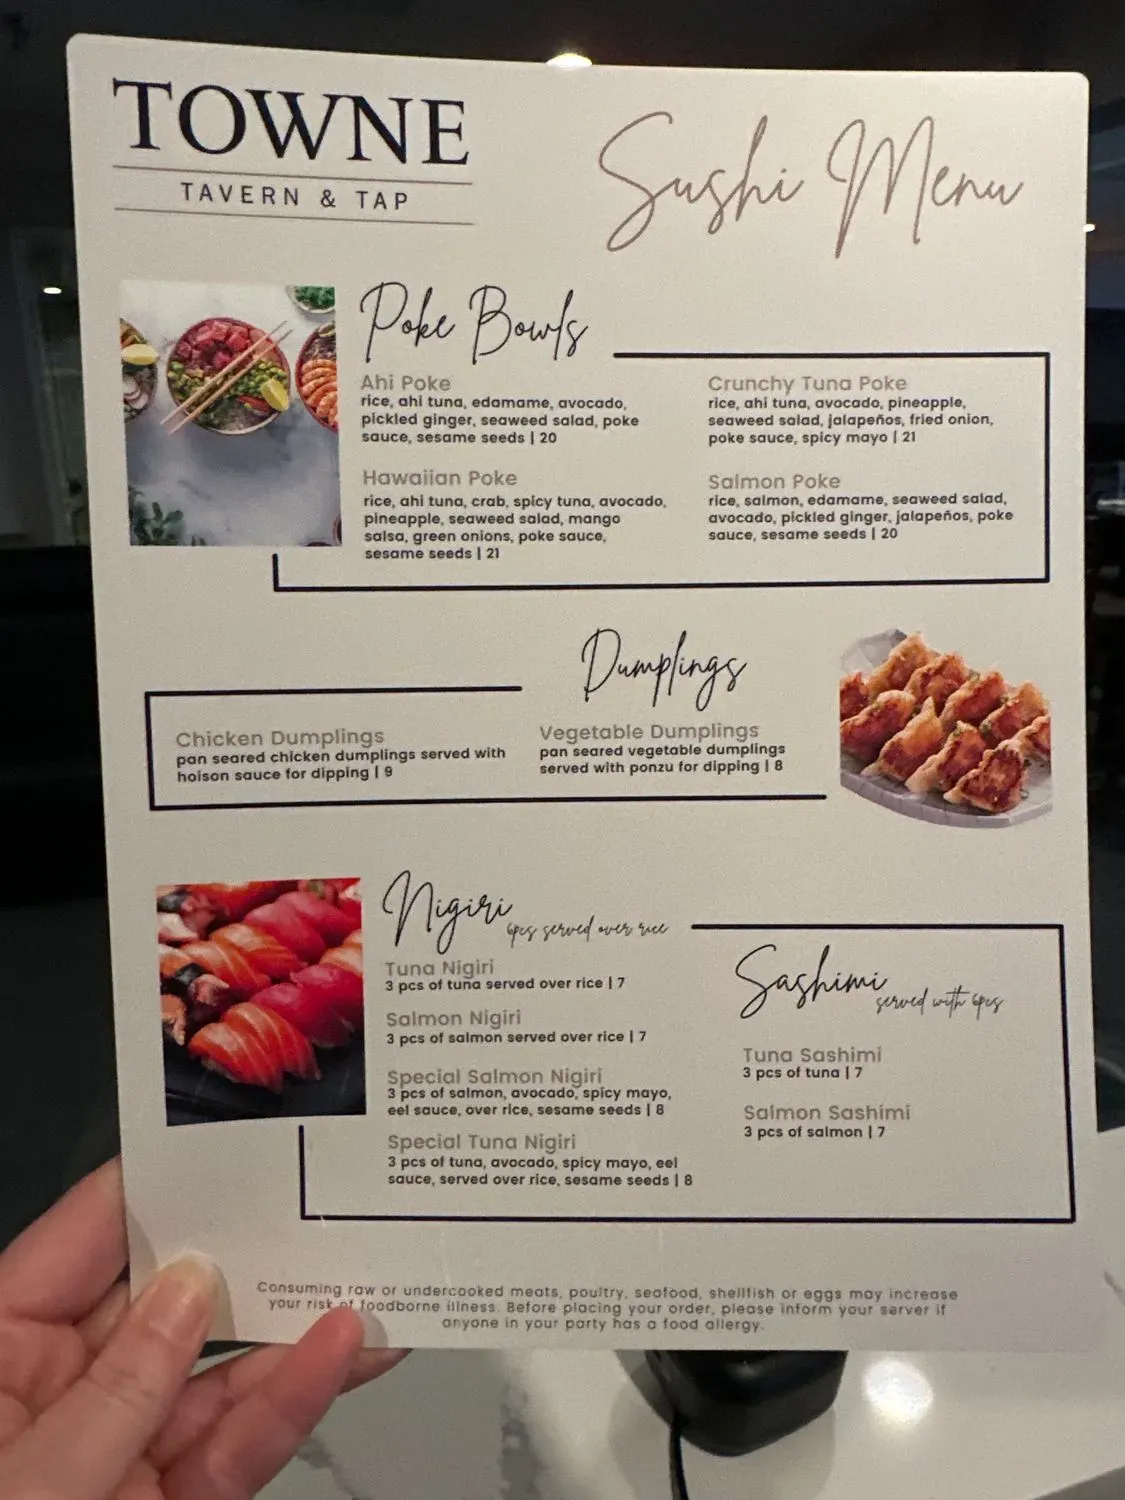 TOWNE
TAVERN & TAP
Sushi Menu
Poke Bowls
Ahi Poke
rice, ahi tuna, edamame, avocado,
pickled ginger, seaweed salad, poke
sauce, sesame seeds | 20
Hawaiian Poke
rice, ahi tuna, crab, spicy tuna, avocado,
pineapple, seaweed salad, mango
salsa, green onions, poke sauce,
sesame seeds | 21
Crunchy Tuna Poke
rice, ahi tuna, avocado, pineapple,
seaweed salad, jalapeños, fried onion,
poke sauce, spicy mayo | 21
Salmon Poke
rice, salmon, edamame, seaweed salad,
avocado, pickled ginger, jalapeños, poke
sauce, sesame seeds | 20
Dumplings
Chicken Dumplings
pan seared chicken dumplings served with
hoison sauce for dipping | 9
Vegetable Dumplings
pan seared vegetable dumplings
served with ponzu for dipping | 8
Nigiri
6pcs served over rice
Tuna Nigiri
3 pcs of tuna served over rice | 7
Salmon Nigiri
3 pcs of salmon served over rice | 7
Special Salmon Nigiri
3 pcs of salmon, avocado, spicy mayo,
eel sauce, over rice, sesame seeds | 8
Special Tuna Nigiri
3 pcs of tuna, avocado, spicy mayo, eel
sauce, served over rice, sesame seeds | 8
Sashimi
served with 6pcs
Tuna Sashimi
3 pcs of tuna | 7
Salmon Sashimi
3 pcs of salmon | 7
Consuming raw or undercooked meats, poultry, seafood, shellfish or eggs may increase
your risk of foodborne illness. Before placing your order, please inform your server if
anyone in your party has a food allergy.